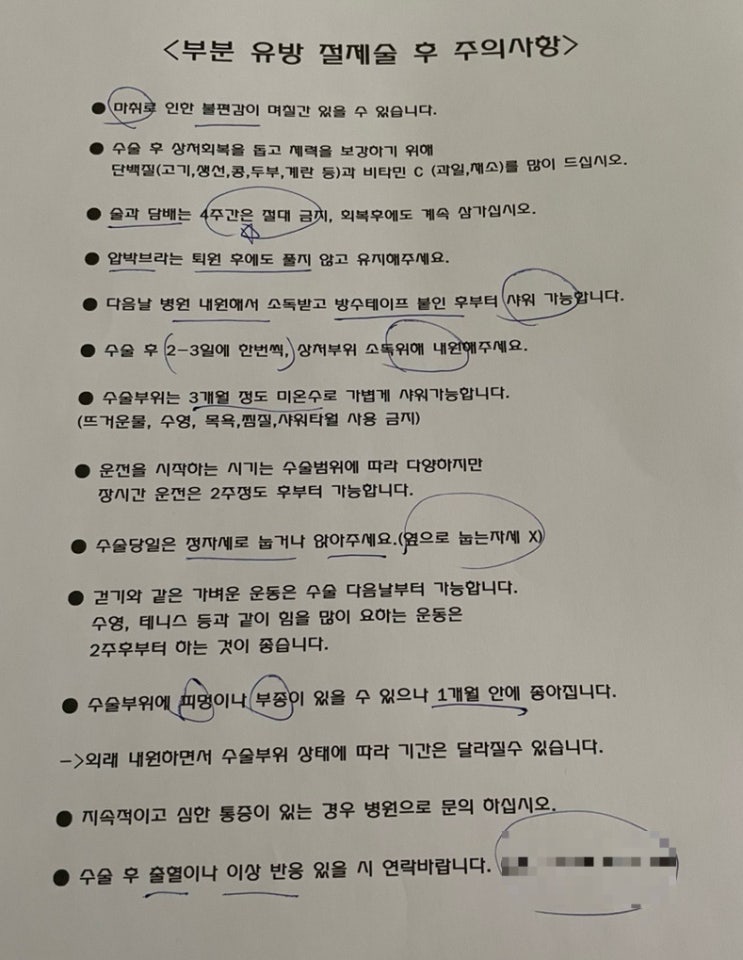 <부분 유방 절제술 후 주의사항>
● 마취로 인한 불편감이 며칠간 있을 수 있습니다.
● 수술 후 상처회복을 돕고 체력을 보강하기 위해
단백질(고기,생선,콩,두부,계란 등)과 비타민 C (과일,채소)를 많이 드십시오.
● 술과 담배는 4주간은 절대 금지, 회복후에도 계속 삼가십시오.
● 압박브라는 퇴원 후에도 풀지 않고 유지해주세요.
● 다음날 병원 내원해서 소독받고 방수테이프 붙인 후부터 샤워 가능합니다.
● 수술 후 2-3일에 한번씩, 상처부위 소독위해 내원해주세요.
● 수술부위는 3개월 정도 미온수로 가볍게 샤워가능합니다.
(뜨거운물, 수영, 목욕,찜질,샤워타월 사용 금지)
● 운전을 시작하는 시기는 수술범위에 따라 다양하지만
장시간 운전은 2주정도 후부터 가능합니다.
● 수술당일은 정자세로 눕거나 앉아주세요.(옆으로 눕는자세 X)
● 걷기와 같은 가벼운 운동은 수술 다음날부터 가능합니다.
수영, 테니스 등과 같이 힘을 많이 요하는 운동은
2주후부터 하는 것이 좋습니다.
● 수술부위에 피멍이나 부종이 있을 수 있으나 1개월 안에 좋아집니다.
->외래 내원하면서 수술부위 상태에 따라 기간은 달라질수 있습니다.
● 지속적이고 심한 통증이 있는 경우 병원으로 문의 하십시오.
● 수술 후 출혈이나 이상 반응 있을 시 연락바랍니다.